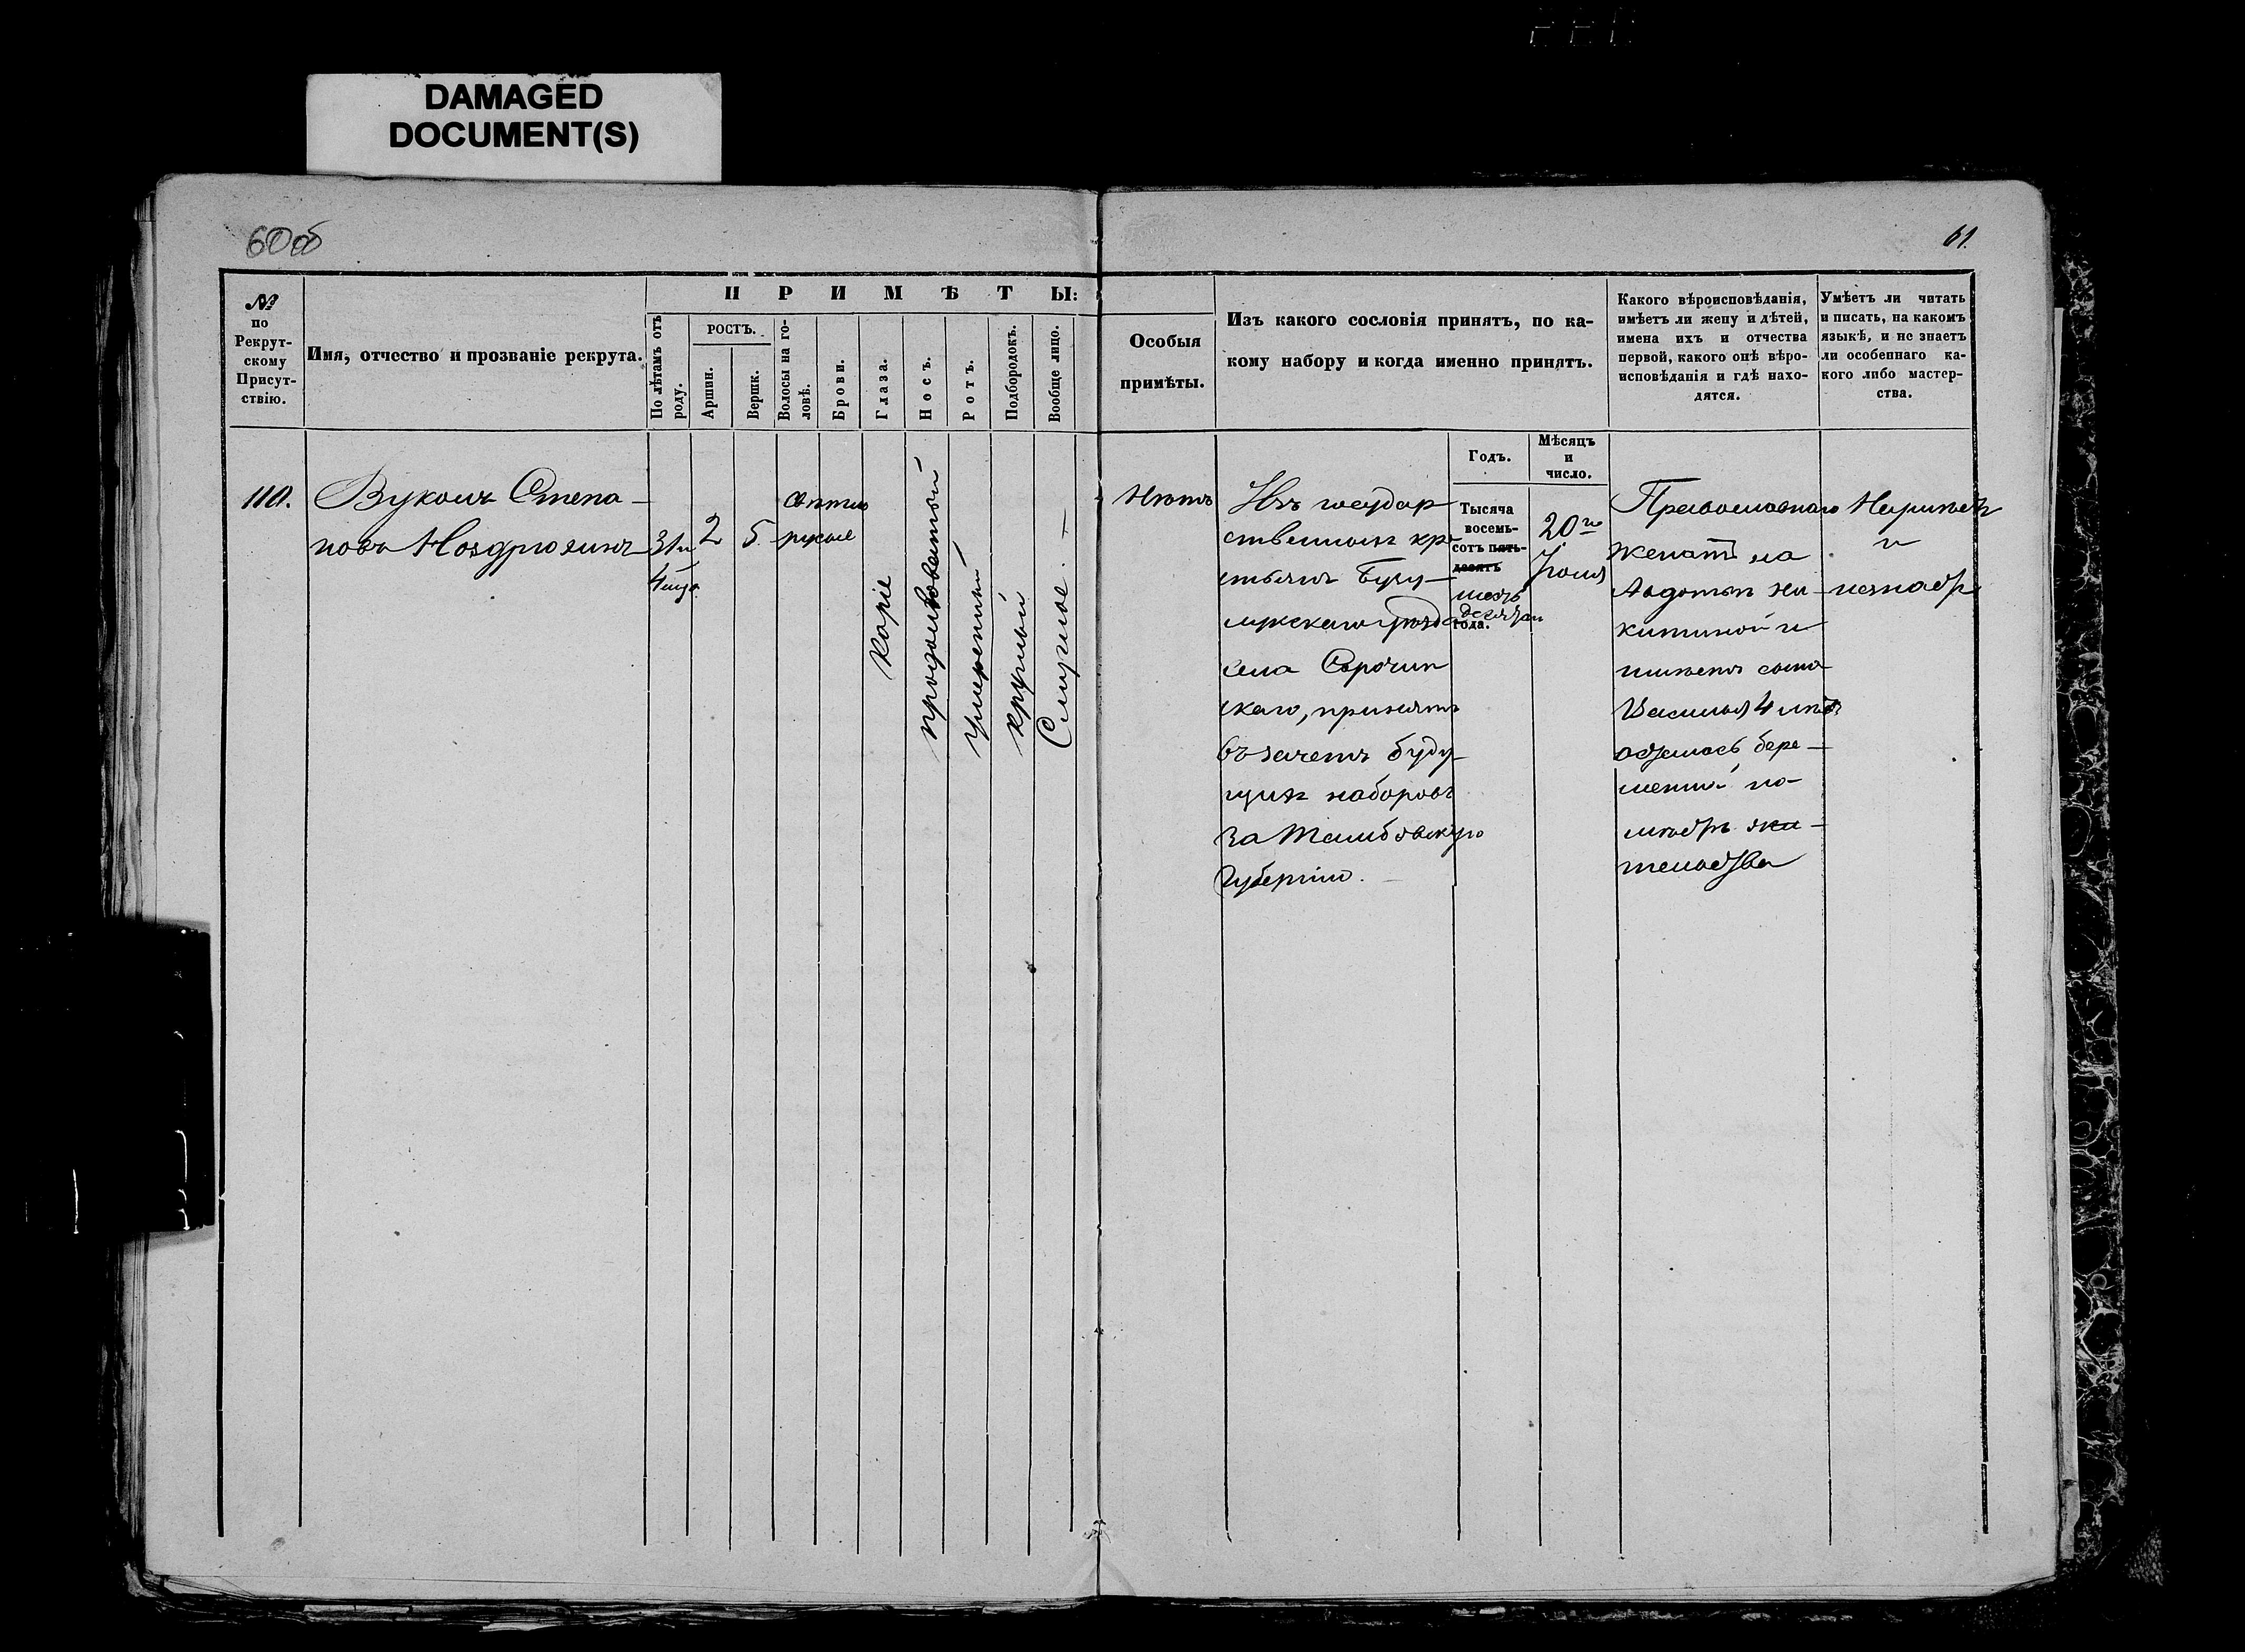 DAMAGED
DOCUMENT(S)
60об
61.
№
по
Рекрут-
скому
Присут-
ствію.
Имя, отчество и прозваніе рекрута.
ПРИМѢТЫ:
По лѣтамъ отъ
роду.
РОСТЪ.
Аршин.
Вершк.
Волосы на го-
ловѣ.
Брови.
Глаза.
Носъ.
Ротъ.
Подбородокъ.
Вообще лицо.
Особыя
примѣты.
Изъ какого сословія принятъ, по ка-
кому набору и когда именно принятъ.
Какого вѣроисповѣданія,
имѣетъ ли жену и дѣтей,
имена ихъ и отчества
первой, какого онѣ вѣро-
исповѣданія и гдѣ нахо-
дятся.
Умѣетъ ли читать
и писать, на какомъ
языкѣ, и не знаетъ
ли особеннаго ка-
кого либо мастер-
ства.
110.
Вуколъ Степа-
новъ Ноздрюхинъ
31 и
4 мѣс.
2
5
свѣтло
русые
каріе
продолговатый
умѣренный
круглый
Смуглое. —
Нѣтъ
Изъ государ
ственныхъ кре
стьянъ Бузу-
лукскаго уѣзда
села Сорочин
скаго, принятъ
въ зачетъ буду-
щихъ наборовъ
за Тамбовскую
Губернію. —
Годъ.
Тысяча
восемь-
сотъ пять-
десятъ
шесть
десятъ
года.
Мѣсяцъ
и
число.
20го
Православнаго
женатъ на
Авдотьѣ Ни-
китиной и
имѣетъ сына
Василья 4 лѣтъ
осталась бере-
менной по
мѣстъ жи-
тельства
и